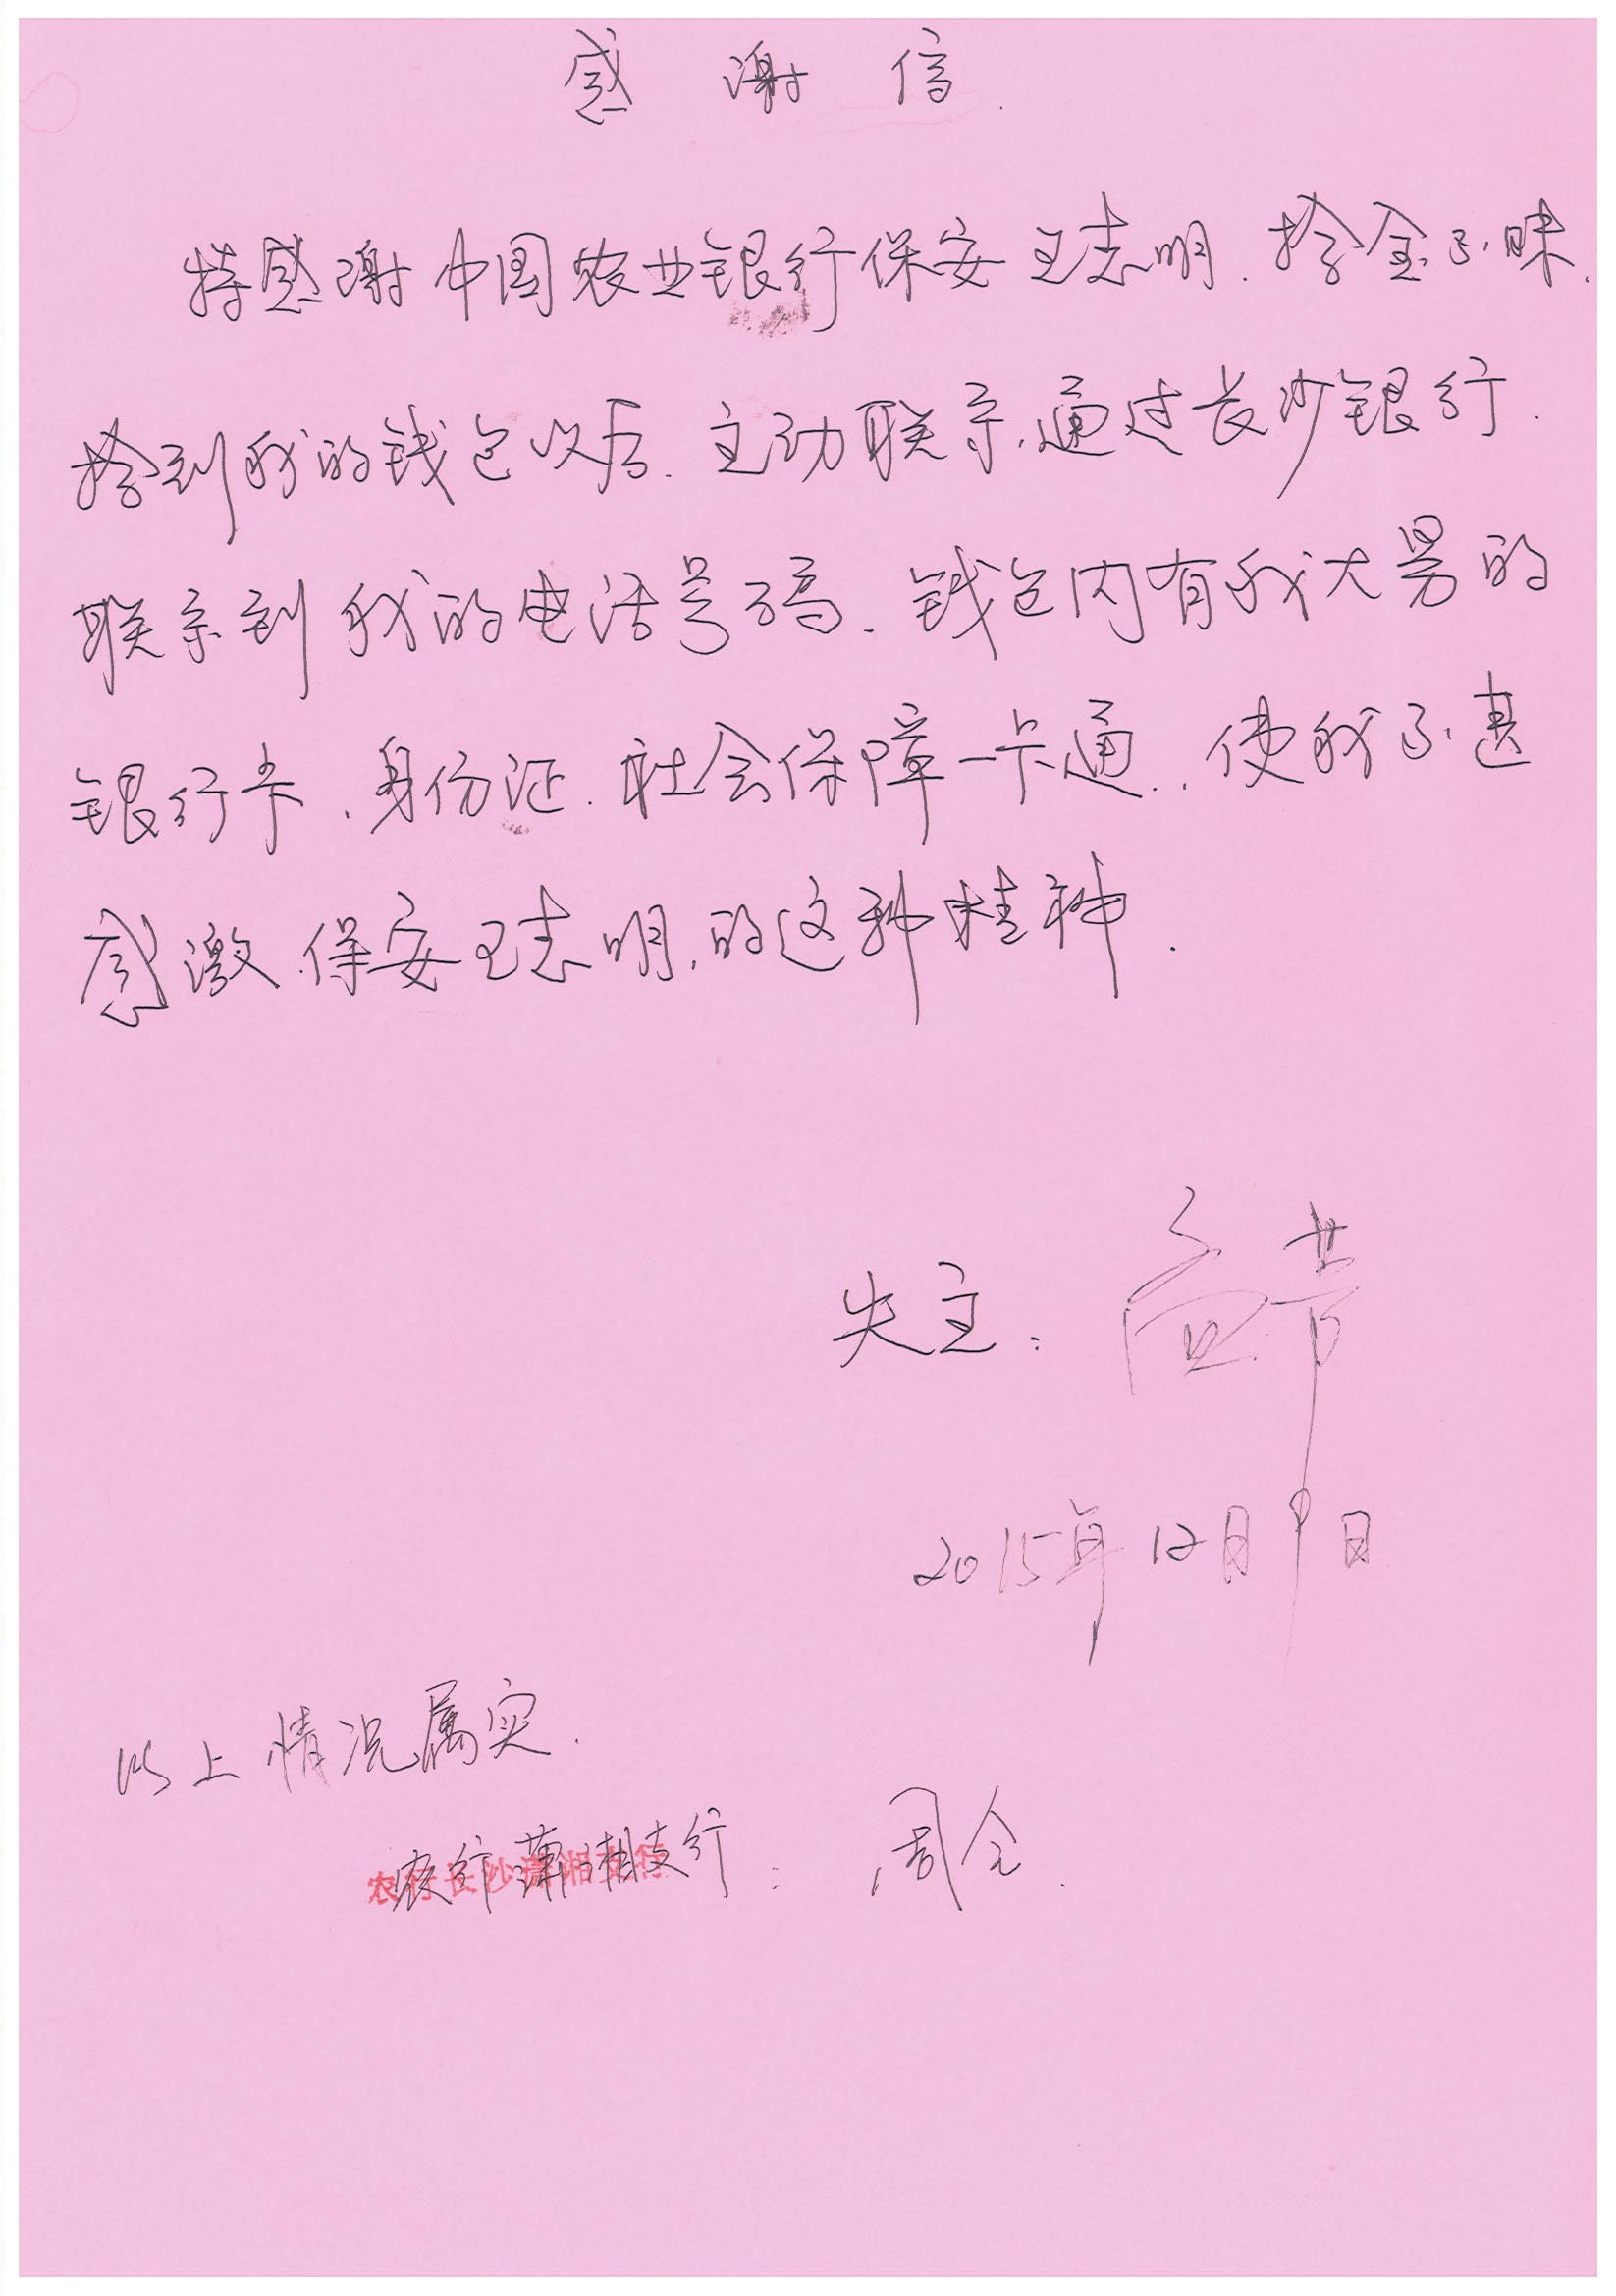 感谢信.
特感谢中国农业银行保安王志明.拾金不昧.
拾到我的钱包以后.主动联系.通过长沙银行.
联系到我的电话号码.钱包内有我大男的
银行卡.身份证.社会保障一卡通.使我不甚
感激.保安王志明.的这种精神.
失主:
2015年12月9日
以上情况属实.
农行潇湘支行: 周全.
农行长沙潇湘支行